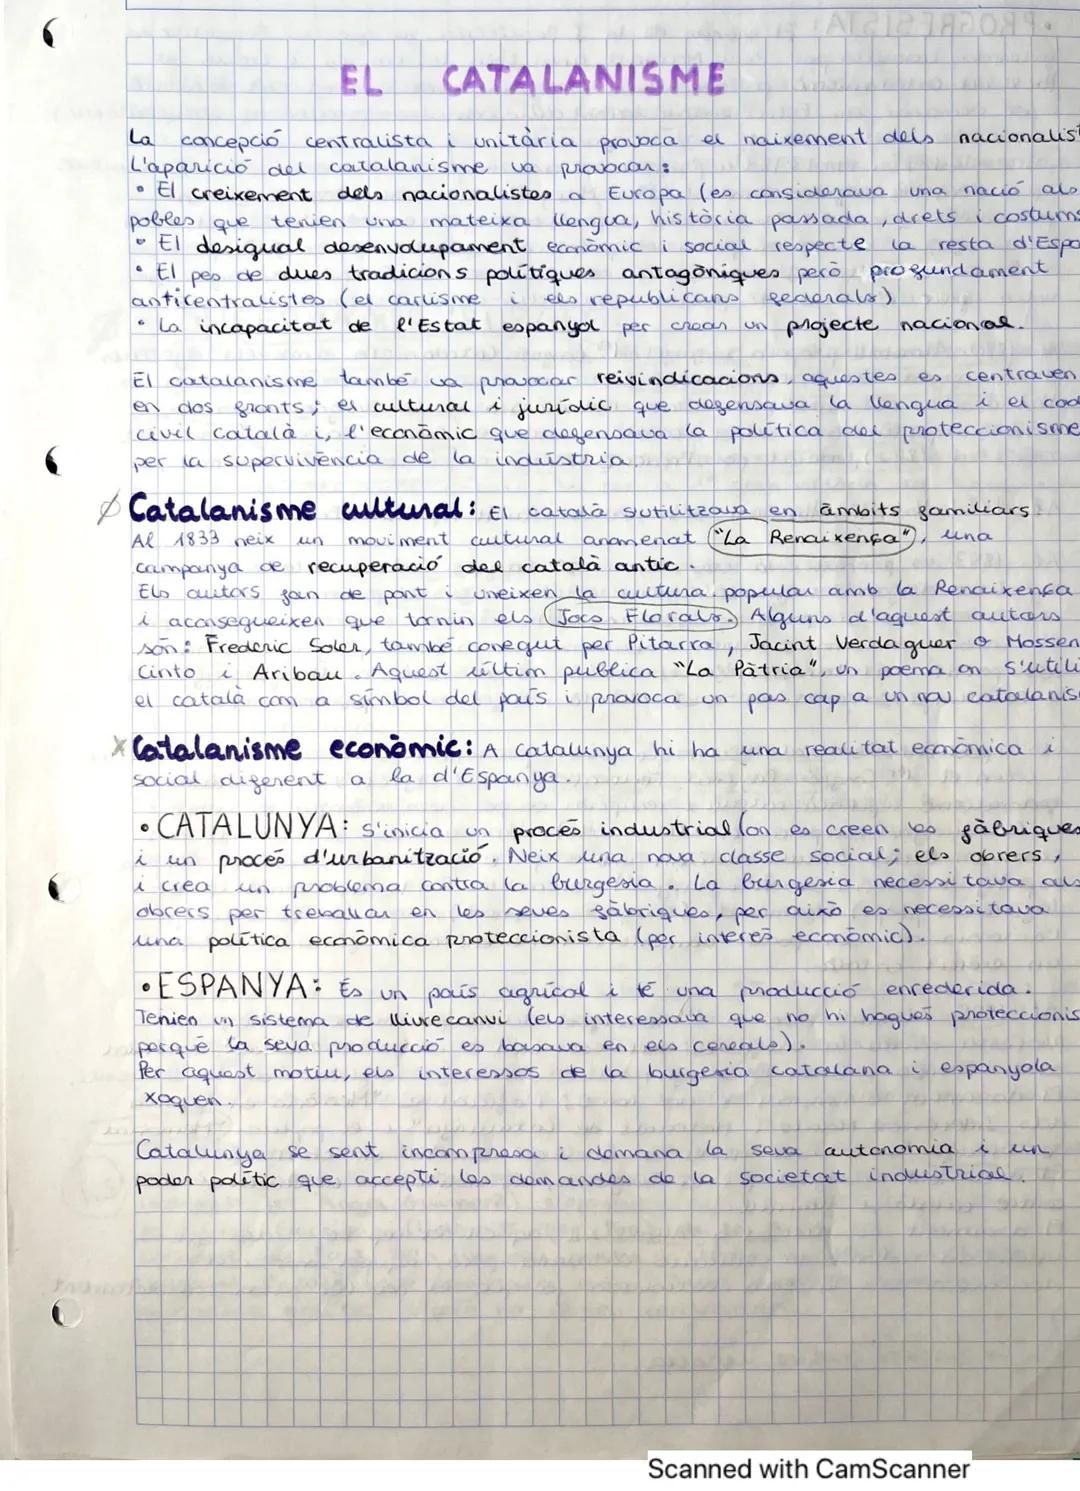 EL CATALANISME
La concepció centralista i unitària provoca el naixement dels nacionalist
L'aparició del catalanisme va provocar:
• El creixement dels nacionalistes a Europa (es considerava una nació als
pobles que tenien una mateixa llengua, història passada, drets i costums
• El desigual desenvolupament econòmic i social respecte la resta d'Espa
• El pes de dues tradicions polítiques antagòniques però profundament
anticentralistes (el carlisme i els republicans federals)
• La incapacitat de l'Estat espanyol per crear un projecte nacional.
El catalanisme també va provocar reivindicacions, aquestes es centraven
en dos fronts; el cultural i jurídic que defensava la llengua i el cod
civil català i, l'econòmic que defensava la política del proteccionisme
per la supervivència de la indústria
Catalanisme cultural: El català s'utilitzava en àmbits familiars.
Al 1833 neix un moviment cultural anomenat "La Renaixença", una
campanya de recuperació del català antic.
Els autors fan de pont i uneixen la cultura popular amb la Renaixença
i aconsegueixen que tornin els Jocs Florals. Alguns d'aquest autors
són: Frederic Soler, també conegut per Pitarra, Jacint Verdaguer o Mossen
Cinto i Aribau. Aquest últim publica "La Pàtria", un poema on s'utili
el català com a símbol del país i provoca un pas cap a un nou catalanis
Catalanisme econòmic: A Catalunya hi ha una realitat econòmica i
social diferent a la d'Espanya.
• CATALUNYA: S'inicia un procés industrial (on es creen les fàbriques
i un procés d'urbanització. Neix una nova classe social; els obrers,
i crea un problema contra la burgesia. La burgesia necessitava als
obrers per treballar en les seves fàbriques, per això es necessitava
una política econòmica proteccionista (per interès econòmic).
• ESPANYA: És un país agrícol i té una producció enrederida.
Tenien un sistema de lliurecanvi (els interessava que no hi hagués proteccionis
perquè la seva producció es basava en els cereals).
Per aquest motiu, els interessos de la burgesia catalana i espanyola
xoquen.
Catalunya se sent incompresa i demana la seva autonomia i un
poder polític que accepti les demandes de la societat industrial.
Scanned with CamScanner